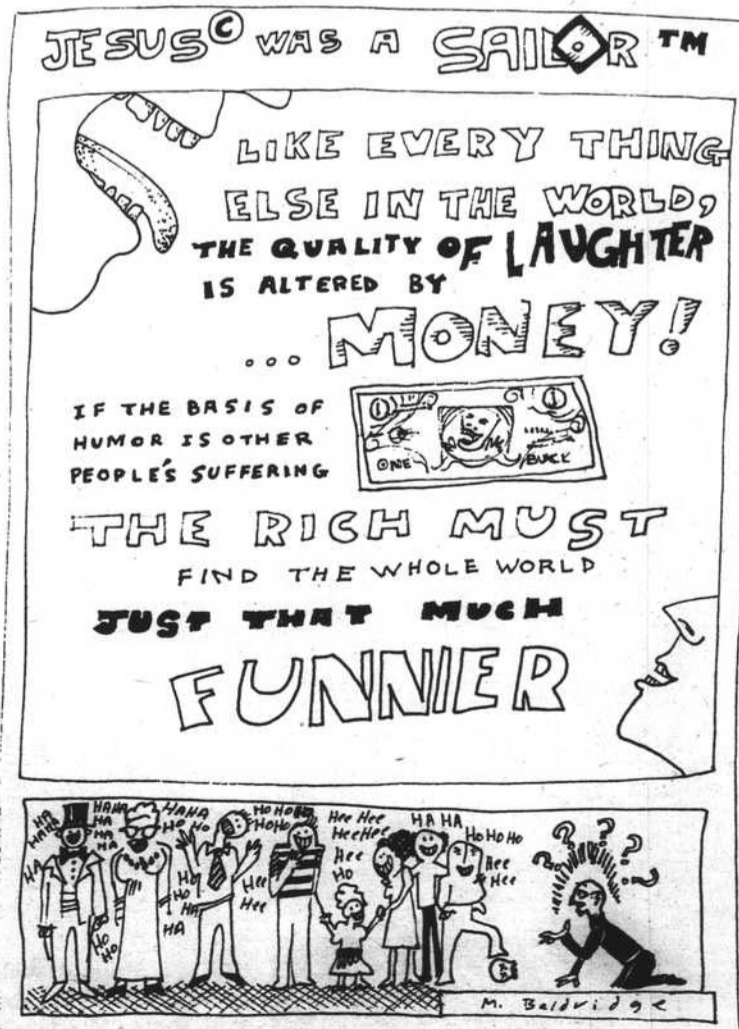 JESUS© WAS A SAILOR ™
LIKE EVERY THING
ELSE IN THE WORLD,
THE QUALITY OF LAUGHTER
IS ALTERED BY
... MONEY!
IF THE BASIS OF
HUMOR IS OTHER
PEOPLE'S SUFFERING
1 1
ONE BUCK
THE RICH MUST
FIND THE WHOLE WORLD
JUST THAT MUCH
FUNNIER
HA
HAHA
HA
HAHA
HA
HA
HA
HAHA
HO HO
HO HO HO
HO HO
Hee Hee
Hee Hee
Hee
HO
HA HA
HO HO HO
Hee
Hee
HO
HO
HA
HA
Hee
Hee
HO
HO
? ? ? ? ?
M. Baldridge